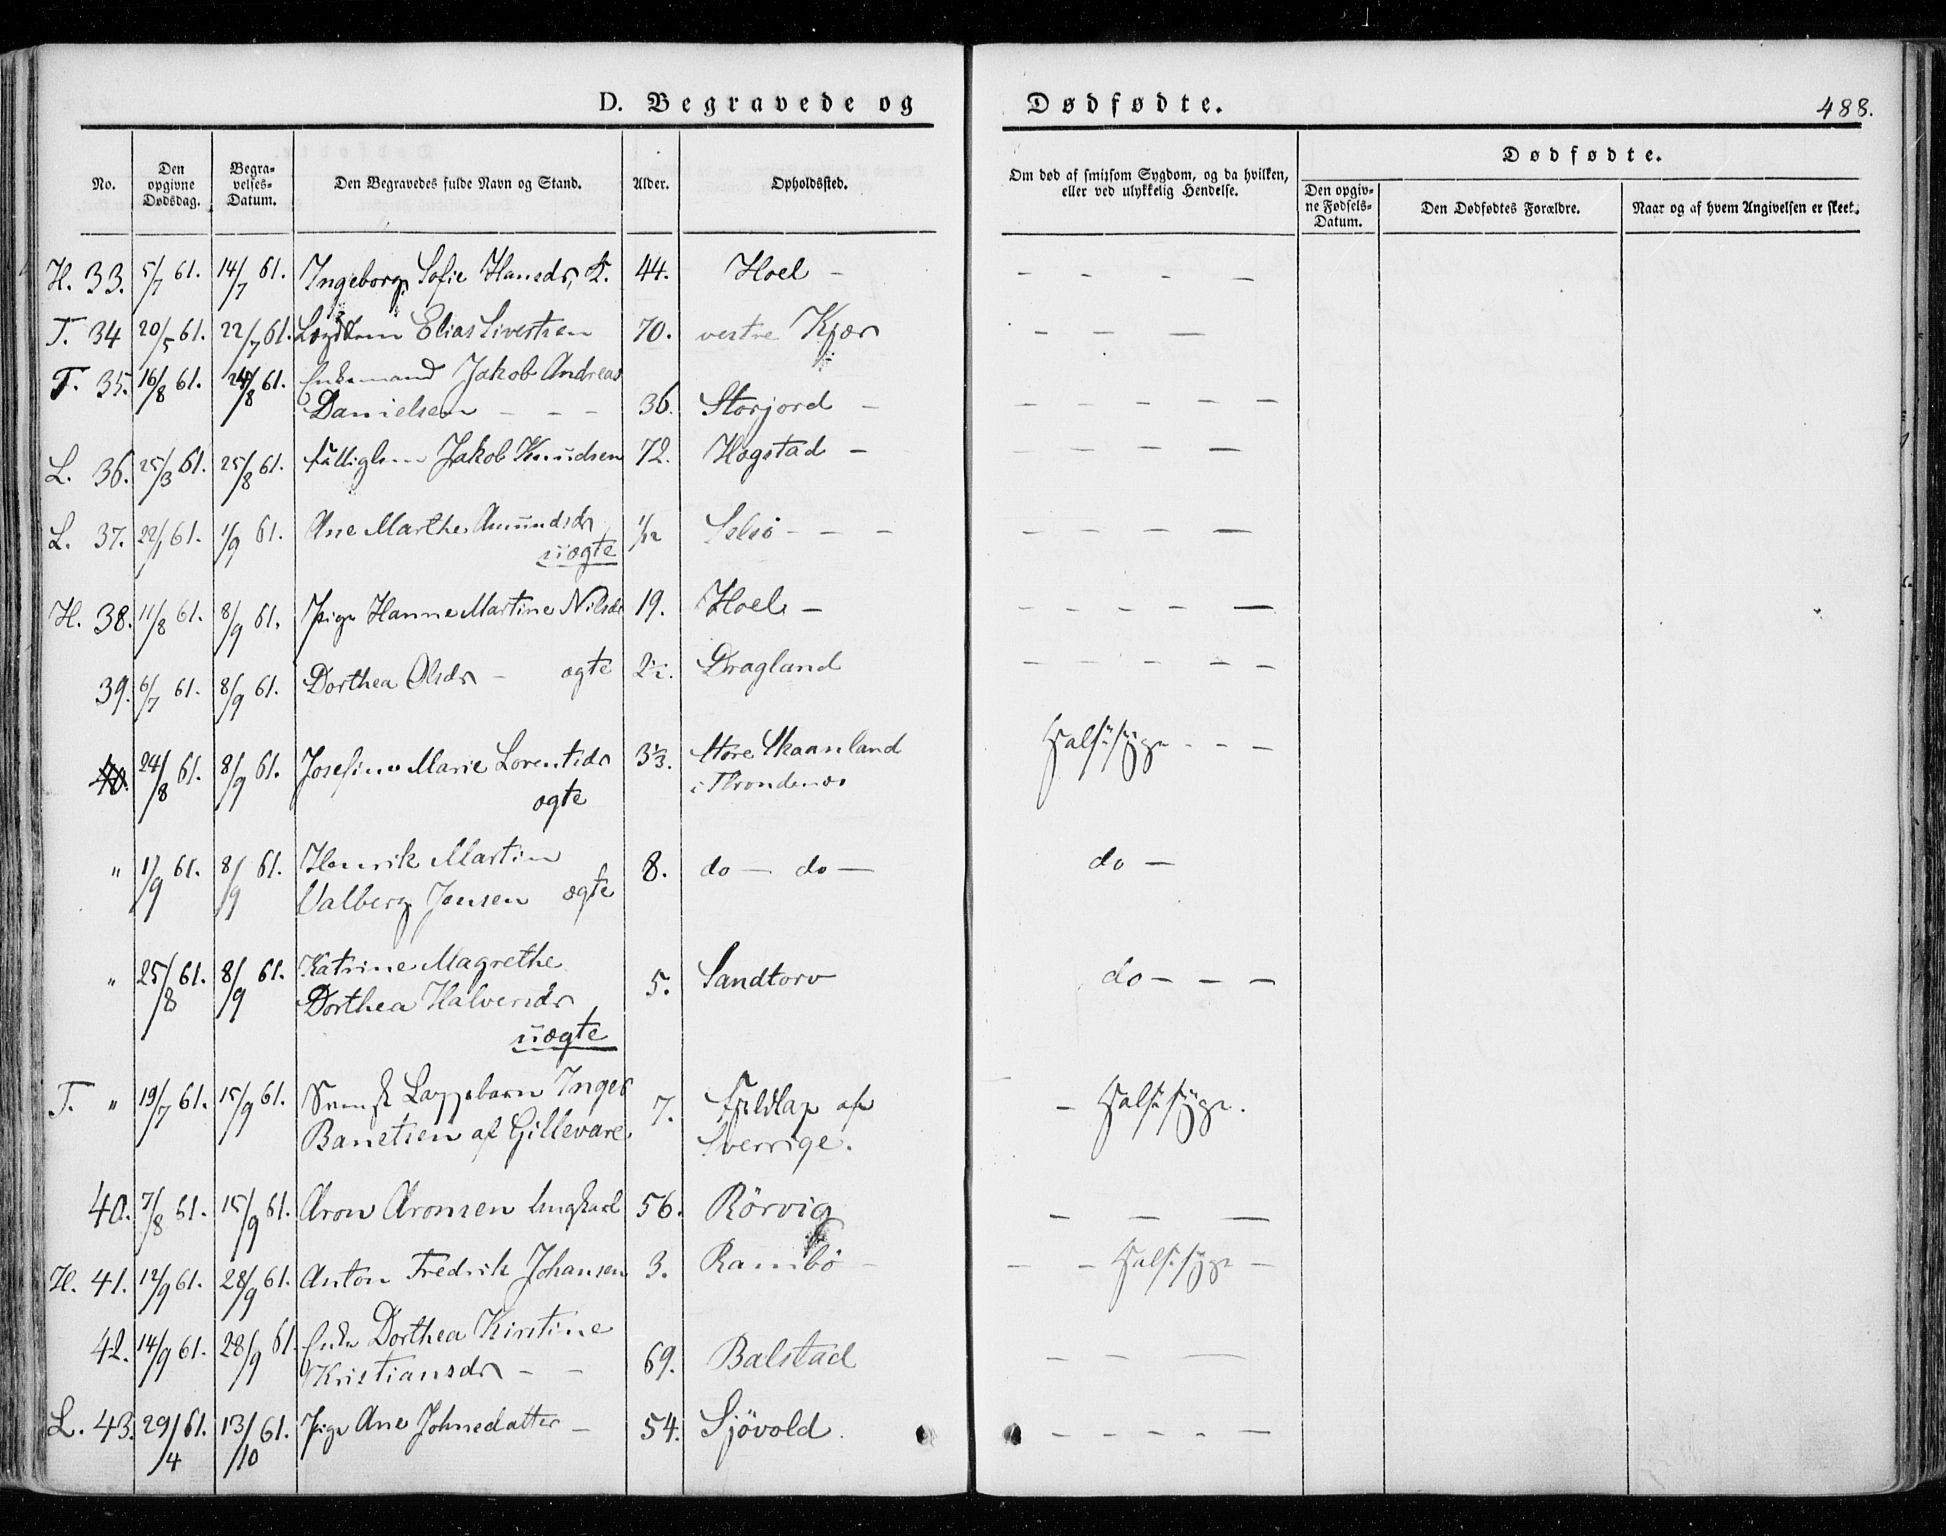 D. Begravede og Dødfødte. 488.
No. Den opgivne Dødsdag. Begravelses-Datum. Den Begravedes fulde Navn og Stand. Alder. Opholdssted. Om død af smitsom Sygdom, og da hvilken, eller ved ulykkelig Hendelse. Dødfødte.
Den opgivne Fødsels-Datum. Den Dødfødtes Forældre. Naar og af hvem Angivelsen er skeet.
H. 33. 5/7 61. 14/7 61. Ingeborg Sofie Hansdr, K. 44. Hoel - - - - -
T. 34 20/5 61. 22/7 61. Elias Sivertsen 70. vestre Kjær - - -
T. 35. 16/8 61. 24/8 61. Enkemand Jakob Andreas
Danielsen - - - 36. Storjord - - - - - -
L. 36. 25/3 61. 25/8 61. Jakob Knudsen 72. Hogstad - - - - -
L. 37. 22/1 61. 1/9 61. Ane Marthe Amundsdr 1/12 Selsö - - - - - - - -
uægte
H. 38. 11/8 61. 8/9 61. Pige Hanne Martine Nilsdr 19. Hoel - - - - - -
39. 6/7 61. 8/9 61. Dorthea Olsdr - ægte 2½. Dragland - - - - -
40. 24/8 61. 8/9 61. Josefine Marie Lorentsdr 3⅓. Store Skaanland Halssyge - - -
ægte i Throndenæs
" 1/9 61. 8/9 61. Henrik Martin
Valberg Jensen ægte 8. do - do - do -
" 25/8 61. 8/9 61. Katrine Magrethe
Dorthea Halversdr 5. Sandtorv do - - -
uægte
T. " 19/7 61. 15/9 61. Svensk Lappebarn Inger 7. Fjeldlap af - Halssyge.
Banetsen af Gillevare Sverrige.
40. 7/8 61. 15/9 61. Aron Aronsen Ungkarl 56. Rörvig - - -
H. 41. 12/9 61. 28/9 61. Anton Fredrik Johansen 3. Rambö - - - Halssyge -
42. 14/9 61. 28/9 61. Enke Dorthea Kirstine
Kristiansdr - - 69. Balstad - - -
L. 43. 29/4 61. 13/10 61. Pige Ane Johnsdatter - 54. Sjövold. - - - - - -